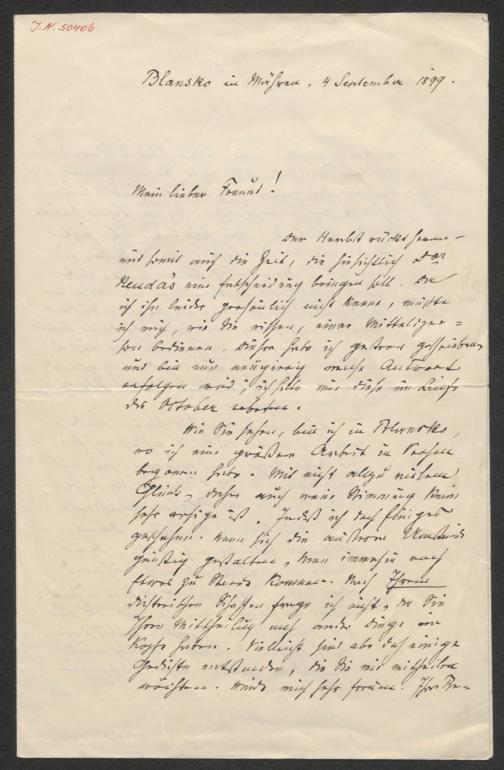 J.N. 50406
Blansko in Mähren, 4 September 1899.
Mein lieber Freund!
Der Herbst rückt heran –
und somit auch die Zeit, die hinsichtlich Dr
Neuda's eine Entscheidung bringen soll. Da
ich ihn leider persönlich nicht kenne, mußte
ich mich, wie Sie wissen, einer Mittelsper=
son bedienen. Dieser habe ich gestern geschrieben,
und bin nun neugierig welche Antwort
erfolgen wird; ich bitte mir diese im Laufe
des October
Wie Sie sehen, bin ich in Blansko,
wo ich eine größere Arbeit in Versen
begonnen habe. Mit nicht allzu vielem
Glück, daher auch meine Stimmung keine
sehr rosige ist. Indeß ich doch fleißig
gesessen. Wenn sich die äußeren Umstände
günstig gestalten, kann immerhin noch
etwas zu Stande kommen. Nach Ihrem
dichterischen Schaffen frage ich nicht, da Sie
Ihrer Mittheilung nach andere Dinge im
Kopfe haben. Vielleicht sind aber doch einige
Gedichte entstanden, die Sie mir mittheilen
möchten. Würde mich sehr freuen. Ihre